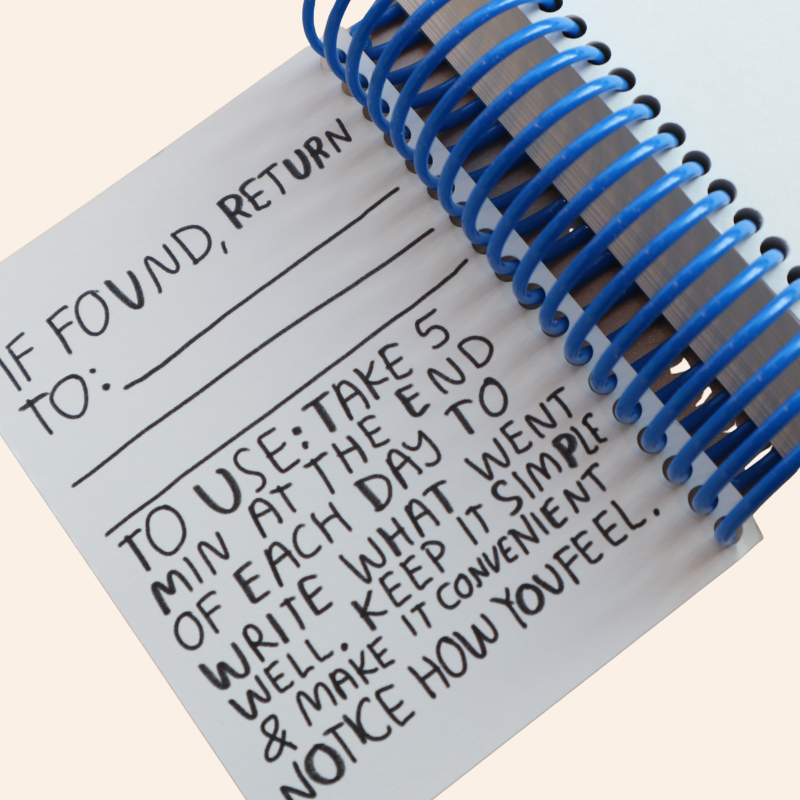 IF FOUND, RETURN
TO:
TO USE: TAKE 5
MIN AT THE END
OF EACH DAY TO
WRITE WHAT WENT
WELL. KEEP IT SIMPLE
& MAKE IT CONVENIENT
NOTICE HOW YOU FEEL.